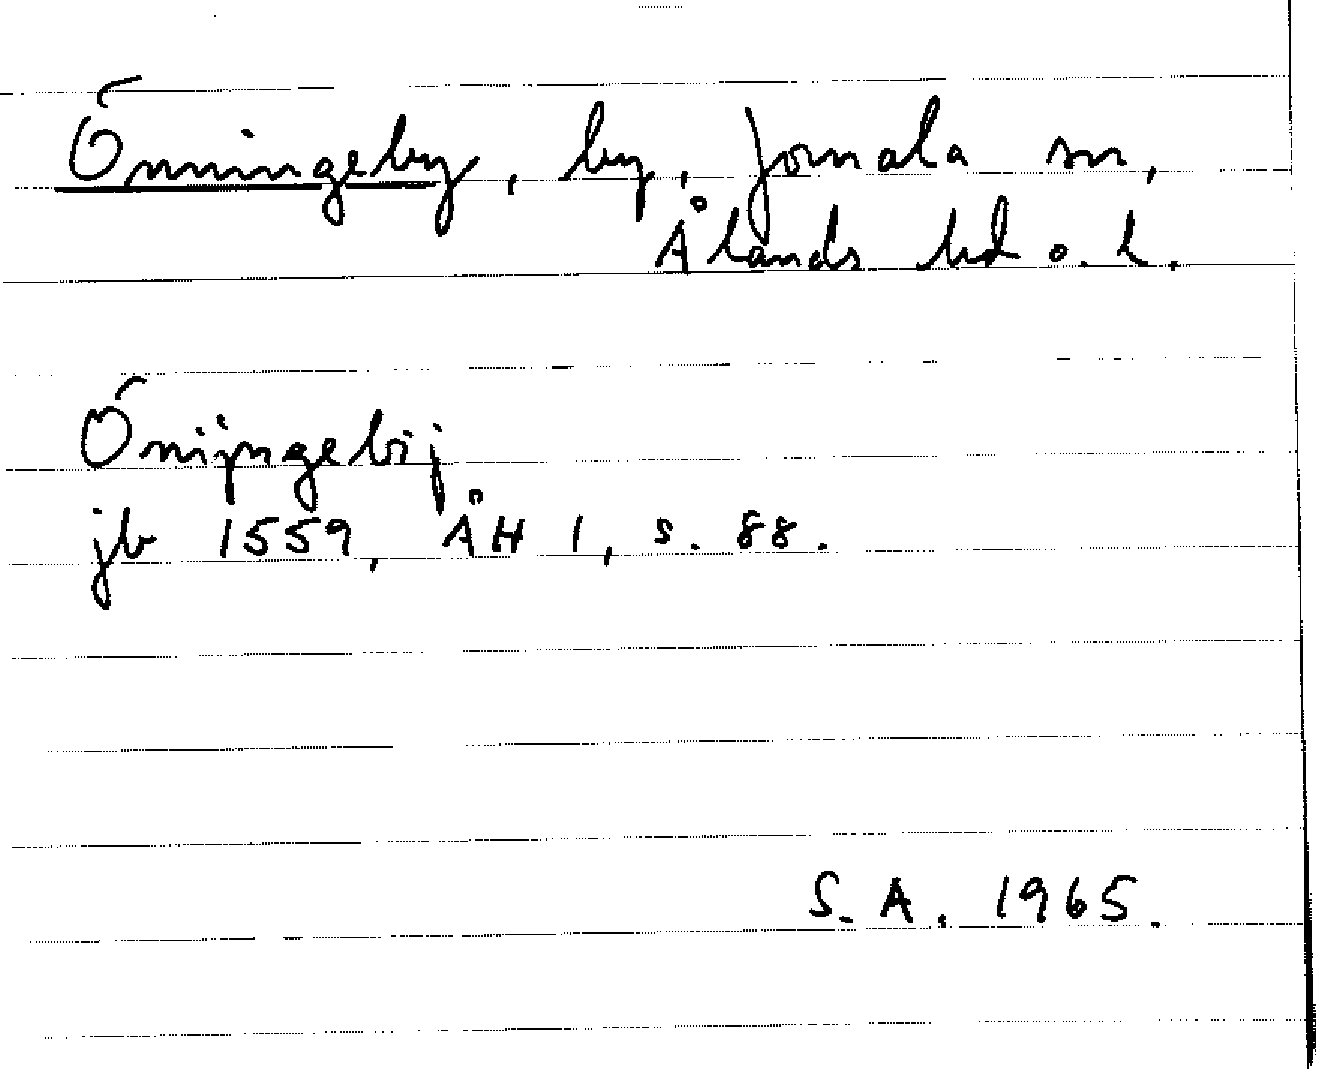 Önningeby, by, Jomala sn,
Ålands hd o. l.
Önijngebij
jb 1559, ÅH 1, s. 88.
S. A. 1965.